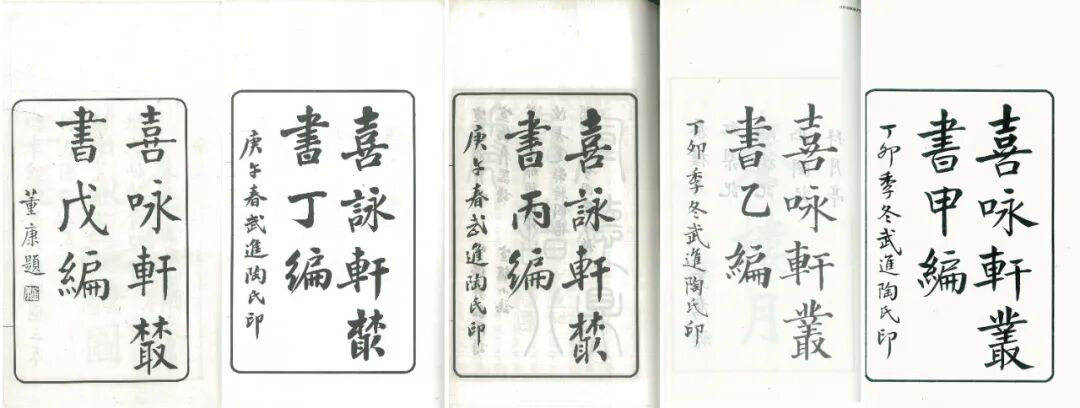 喜咏軒叢
書甲編
丁卯季冬武進陶氏印
喜咏軒叢
書乙編
丁卯季冬武進陶氏印
喜詠軒樷
書丙編
庚午春武進陶氏印
喜詠軒樷
書丁編
庚午春武進陶氏印
喜咏軒樷
書戊編
董康題